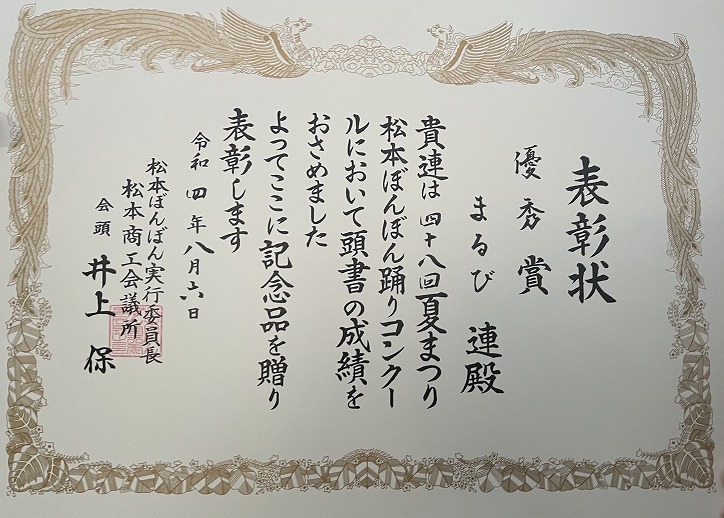 表彰状
優秀賞
まるび 連殿
貴連は 四十八回夏まつり
松本ぼんぼん踊りコンクー
ルにおいて頭書の成績を
おさめました
よってここに記念品を贈り
表彰します
令和四年八月六日
松本ぼんぼん実行委員長
松本商工会議所
会頭 井上 保